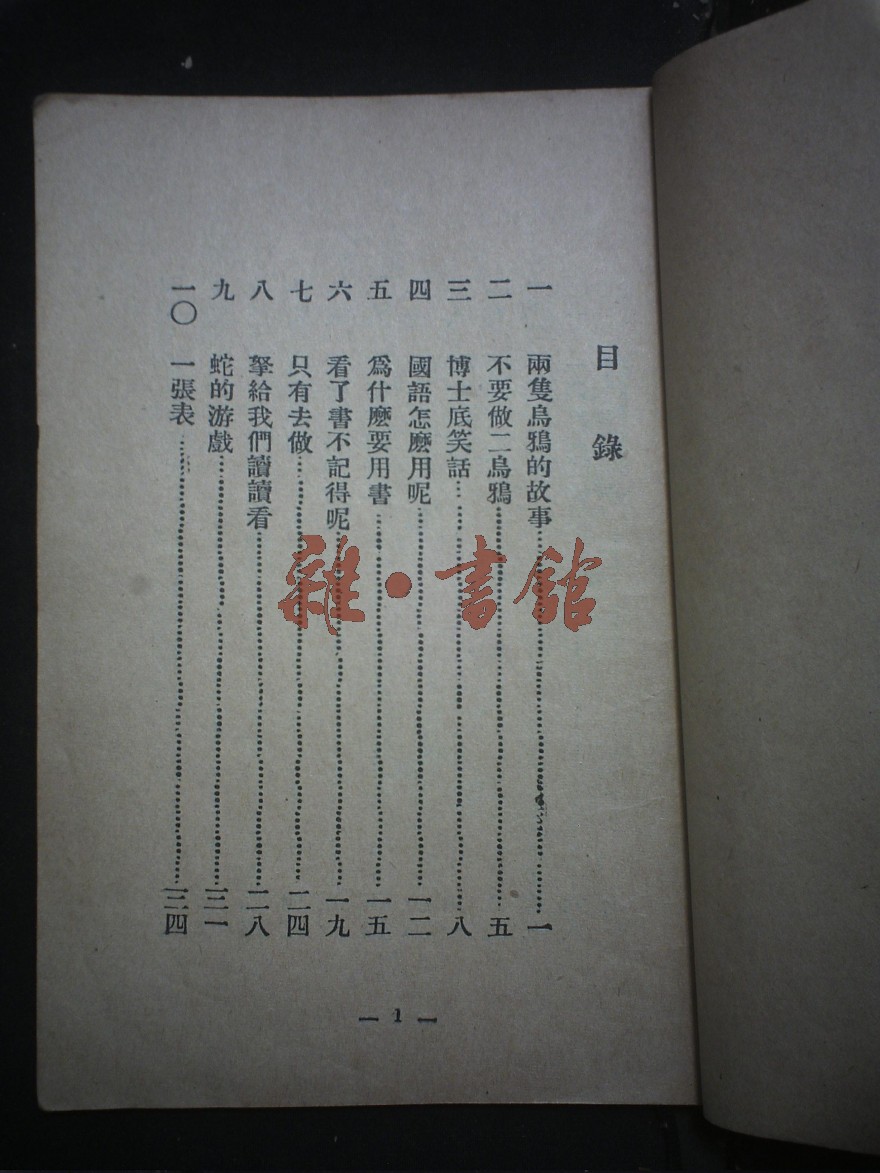 目錄
一 兩隻烏鴉的故事……一
二 不要做二烏鴉……五
三 博士底笑話……八
四 國語怎麼用呢……一二
五 爲什麼要用書……一五
六 看了書不記得呢……一九
七 只有去做……二四
八 拏給我們讀讀看……二八
九 蛇的游戲……三一
一〇 一張表……三四
— 1 —
雜·書館